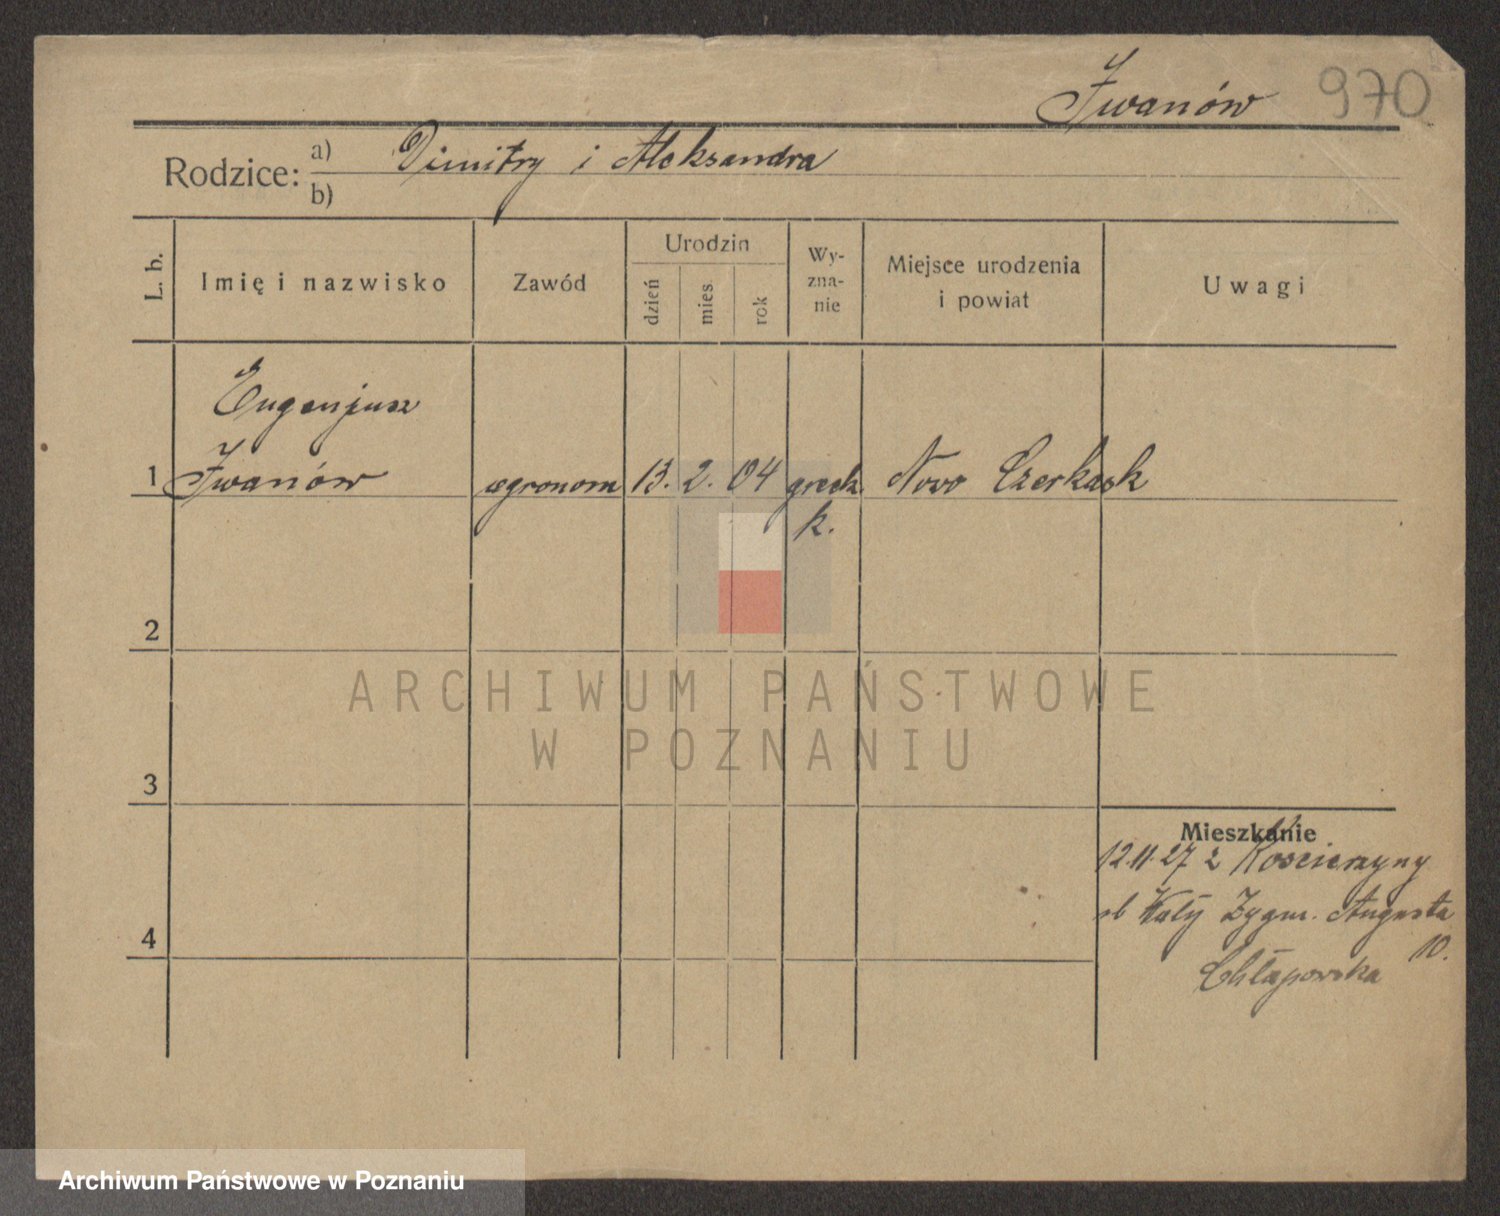 Iwanów 970
Rodzice: a) Dimitry i Aleksandra
b)
L. b.
Imię i nazwisko
Zawód
Urodzin
dzień
mies.
rok
Wy-
zna-
nie
Miejsce urodzenia
i powiat
Uwagi
Eugenjusz
1 Iwanów agronom 13. 2. 04 greck. Nowo Czerkask
k.
2
ARCHIWUM PAŃSTWOWE
W POZNANIU
3
Mieszkanie
12.11.27 z Kościerzyny
Zygm. Augusta
10.
4
Chłapowska
Archiwum Państwowe w Poznaniu